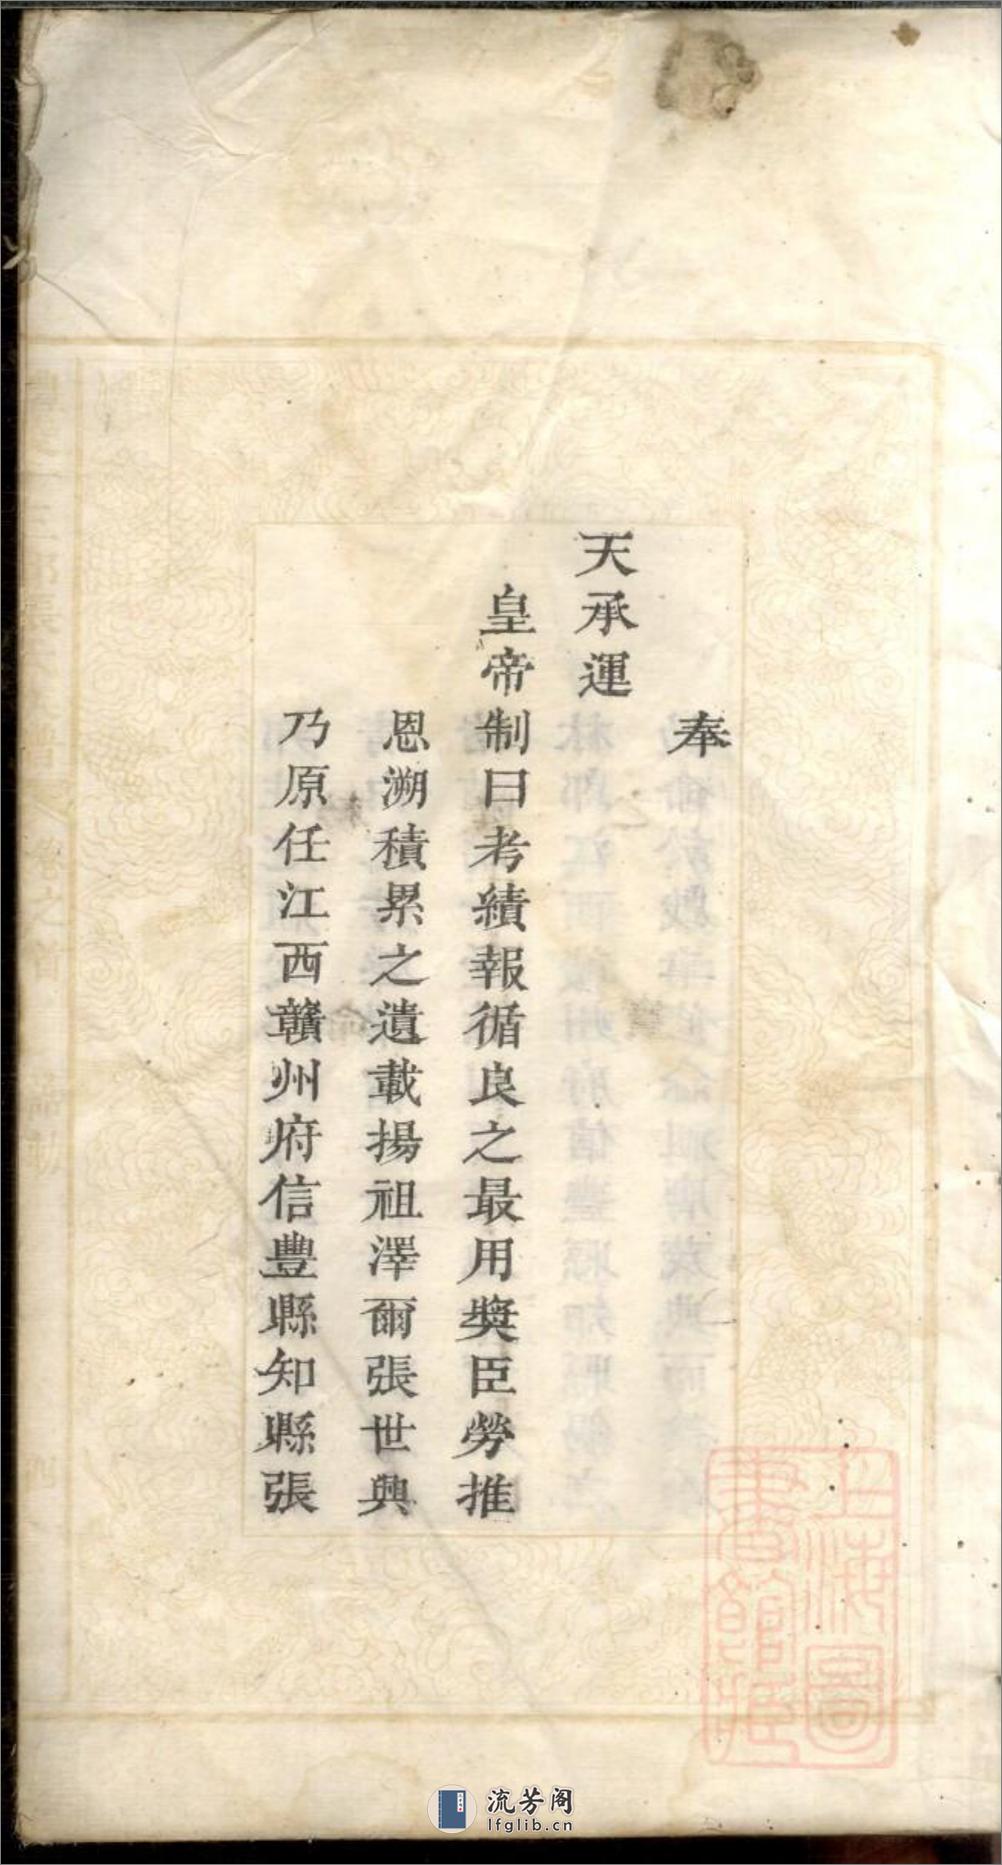 奉
天承運
皇帝制曰考績報循良之最用獎臣勞推
恩溯積累之遺載揚祖澤爾張世興
乃原任江西贛州府信豐縣知縣張
上海圖
書館藏
流芳阁
lfglib.cn